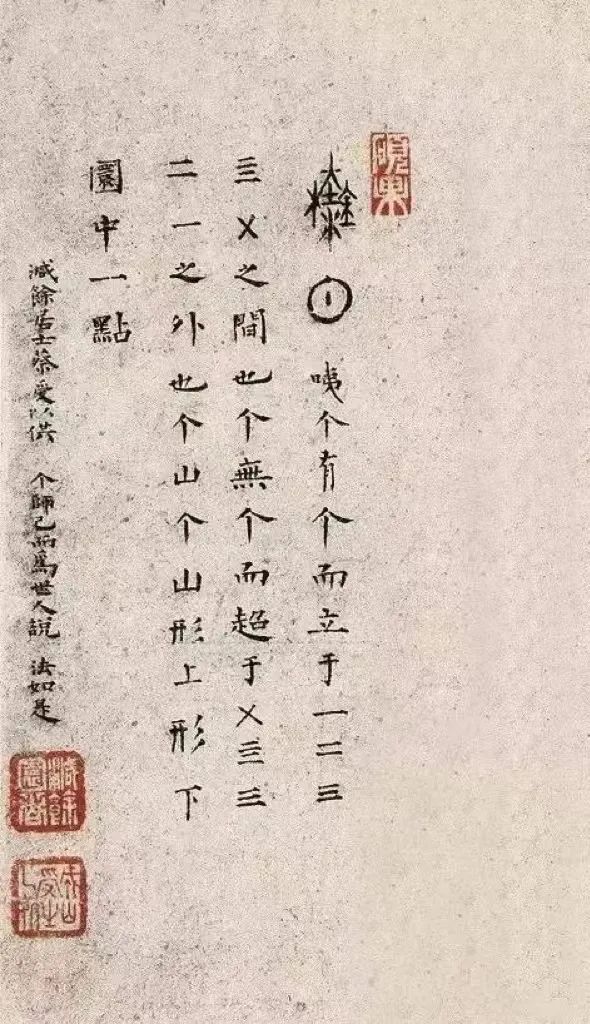 咦个有个而立于一二三
亖㐅之間也个無个而超于㐅亖三
二一之外也个山个山形上形下
圜中一點
減餘居士蔡受以供 个師已而爲世人說 法如是